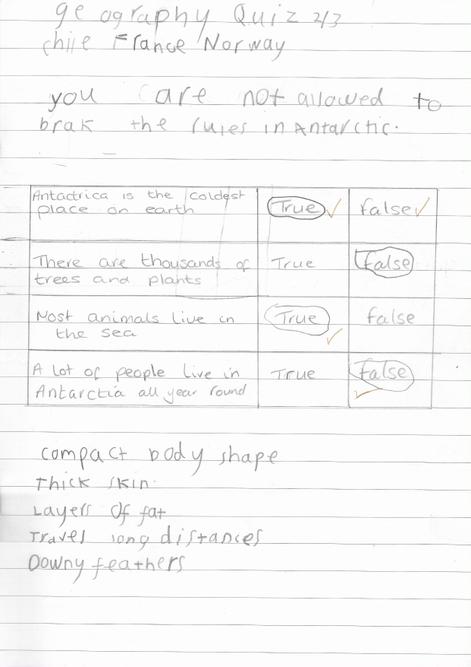 geography Quiz 2/3
chile France Norway
you care not allowed to
brak the rules in Antarctic.
Antactrica is the coldest
place on earth
True
false
There are thousands of
trees and plants
True
false
Most animals live in
the sea
True
false
A lot of people live in
Antarctia all year round
True
false
compact body shape
Thick skin.
Layers of fat
Travel long distances
Downy feathers